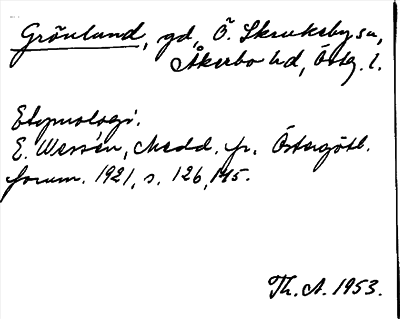 Grönland, gd, Ö. Skrukeby sn,
Åkerbo hd, Östg. l.
Etymologi.
E. Wessén, Medd. fr. Östergötl.
fornm. 1921, s. 126, 145.
Th. A. 1953.